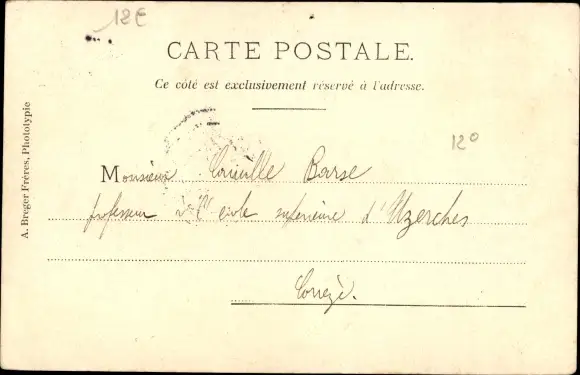 12€
CARTE POSTALE.
Ce côté est exclusivement réservé à l'adresse.
12°
A. Breger Frères, Phototypie
Monsieur Barse
professeur à l' école supérieure d'Uzerches
Corrèze.